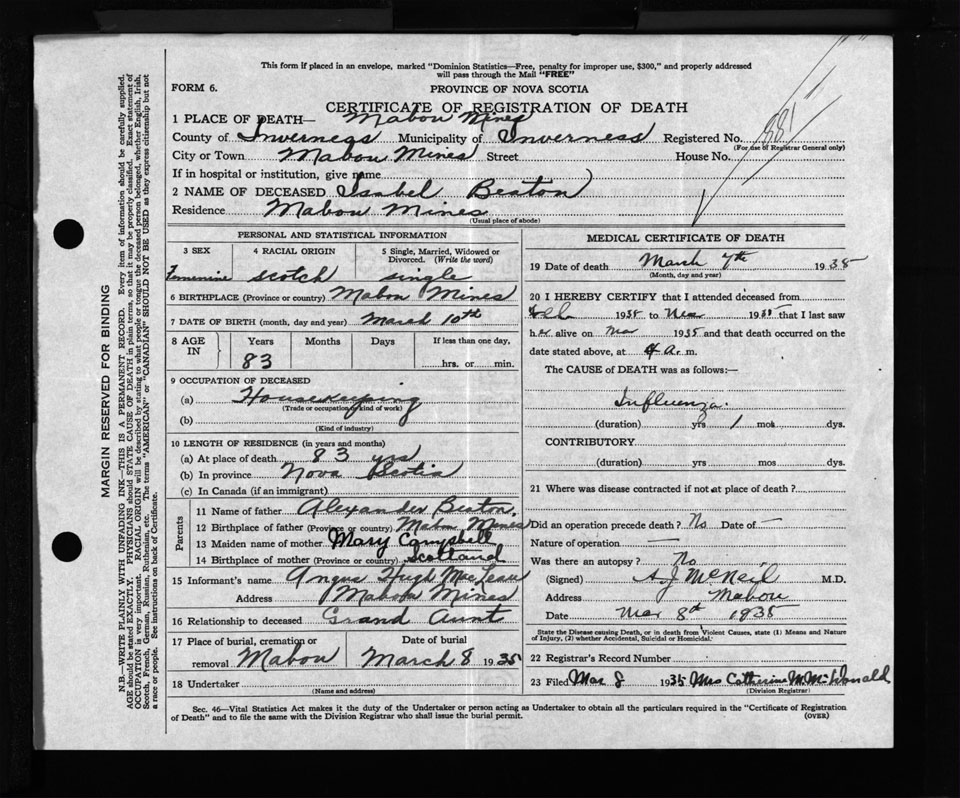 This form if placed in an envelope, marked "Dominion Statistics—Free, penalty for improper use, $300," and properly addressed
will pass through the Mail "FREE"
FORM 6.
PROVINCE OF NOVA SCOTIA
CERTIFICATE OF REGISTRATION OF DEATH
1 PLACE OF DEATH— Mabou Mines
County of Inverness Municipality of Inverness Registered No. 881
(For use of Registrar General only)
City or Town Mabou Mines Street House No.
If in hospital or institution, give name
2 NAME OF DECEASED Isabel Beaton
Residence Mabou Mines
(Usual place of abode)
PERSONAL AND STATISTICAL INFORMATION
3 SEX 4 RACIAL ORIGIN 5 Single, Married, Widowed or
Divorced. (Write the word)
scotch single
6 BIRTHPLACE (Province or country) Mabou Mines
7 DATE OF BIRTH (month, day and year) March 10th
8 AGE IN Years Months Days If less than one day,
83 hrs. or min.
9 OCCUPATION OF DECEASED
(a) Housekeeping
(Trade or occupation or kind of work)
(b)
(Kind of industry)
10 LENGTH OF RESIDENCE (in years and months)
(a) At place of death 83 yrs
(b) In province Nova Scotia
(c) In Canada (if an immigrant)
Parents
11 Name of father Alexander Beaton.
12 Birthplace of father (Province or country) Mabou Mines
13 Maiden name of mother Mary Campbell
14 Birthplace of mother (Province or country) Scotland
15 Informant's name Angus Hugh MacLean
Address Mabou Mines
16 Relationship to deceased Grand Aunt
17 Place of burial, cremation or Date of burial
removal Mabou March 8 1935
18 Undertaker
(Name and address)
MEDICAL CERTIFICATE OF DEATH
19 Date of death March 7th 1935
(Month, day and year)
20 I HEREBY CERTIFY that I attended deceased from
Feb 1935 to Mar 1935 that I last saw
her alive on Mar 1935 and that death occurred on the
date stated above, at a. m.
The CAUSE of DEATH was as follows:—
Influenza.
(duration) yrs 1 mos. dys.
CONTRIBUTORY
(duration) yrs mos dys.
21 Where was disease contracted if not at place of death?
Did an operation precede death? No Date of —
Nature of operation —
Was there an autopsy? No
(Signed) A J McNeil M.D.
Address Mabou
Date Mar 8th 1935
State the Disease causing Death, or in death from Violent Causes, state (1) Means and Nature
of Injury, (2) whether Accidental, Suicidal or Homicidal.
22 Registrar's Record Number
23 Filed Mar 8 1935 Mrs Catherine M McDonald
(Division Registrar)
Sec. 46—Vital Statistics Act makes it the duty of the Undertaker or person acting as Undertaker to obtain all the particulars required in the "Certificate of Registration
of Death" and to file the same with the Division Registrar who shall issue the burial permit.
(OVER)
MARGIN RESERVED FOR BINDING
N.B.—WRITE PLAINLY WITH UNFADING INK—THIS IS A PERMANENT RECORD. Every item of information should be carefully supplied.
AGE should be stated EXACTLY. PHYSICIANS should STATE CAUSE OF DEATH in plain terms, so that it may be properly classified. Exact statement of
OCCUPATION is very important. RACIAL ORIGIN will be described by stating to what people or tongue the deceased person belonged, whether English, Irish,
Scotch, French, German, Russian, Ruthenian, etc. The terms "AMERICAN" or "CANADIAN" SHOULD NOT BE USED as they express citizenship but not
a race or people. See instructions on back of Certificate.